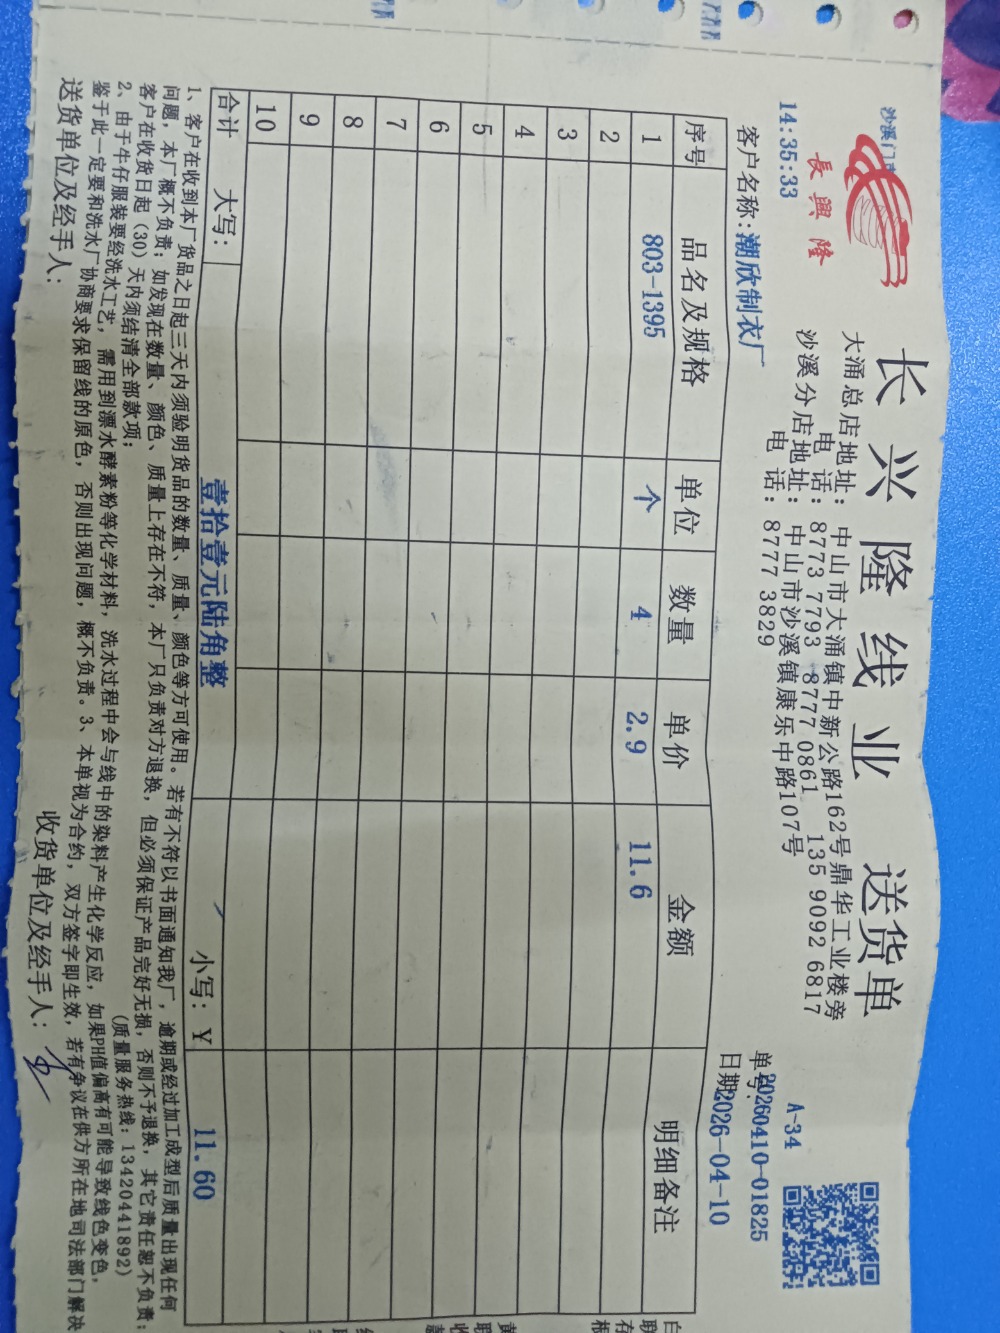 长兴隆线业 送货单
沙溪门市
長興隆
大涌总店地址：中山市大涌镇中新公路162号鼎华工业楼旁
电话：8773 7793 8777 0861 135 9092 6817
沙溪分店地址：中山市沙溪镇康乐中路107号
电话：8777 3829
A-34
14:35:33
单号：20260410-01825
客户名称：潮欣制衣厂
日期2026-04-10
序号 品名及规格 单位 数量 单价 金额 明细备注
1 803-1395 个 4 2.9 11.6
2
3
4
5
6
7
8
9
10
合计 大写： 壹拾壹元陆角整 小写：¥ 11.60
1、客户在收到本厂货品之日起三天内须验明货品的数量、质量、颜色等方可使用。若有不符以书面通知我厂，逾期或经过加工成型后质量出现任何
问题，本厂概不负责；如发现在数量、颜色、质量上存在不符，本厂只负责对方退换，但必须保证产品完好无损，否则不予退换，其它责任恕不负责；
客户在收货日起（30）天内须结清全部款项；（质量服务热线：13420441892）
2、由于牛仔服装要经洗水工艺，需用到漂水酵素粉等化学材料，洗水过程中会与线中的染料产生化学反应，如果PH值偏高有可能导致线色变色，
鉴于此一定要和洗水厂协商要求保留线的原色，否则出现问题，概不负责。3、本单视为合约，双方签字即生效，若有争议在供方所在地司法部门解决
送货单位及经手人： 收货单位及经手人：